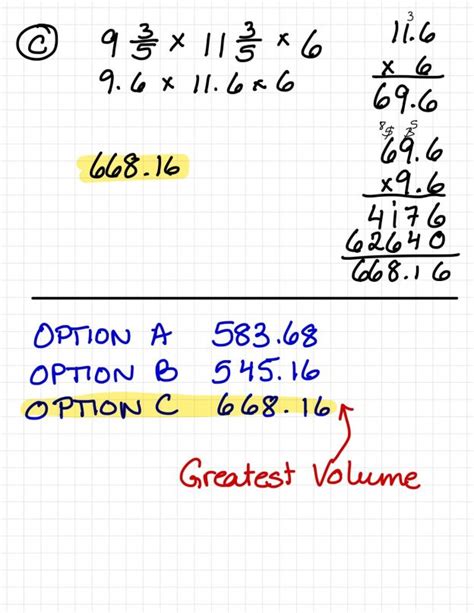 C 9 3/5 × 11 3/5 × 6
9.6 × 11.6 × 6
668.16
3
11.6
× 6
69.6
8 5 5 3
69.6
×9.6
4176
62640
668.16
OPTION A 583.68
OPTION B 545.16
OPTION C 668.16
Greatest Volume